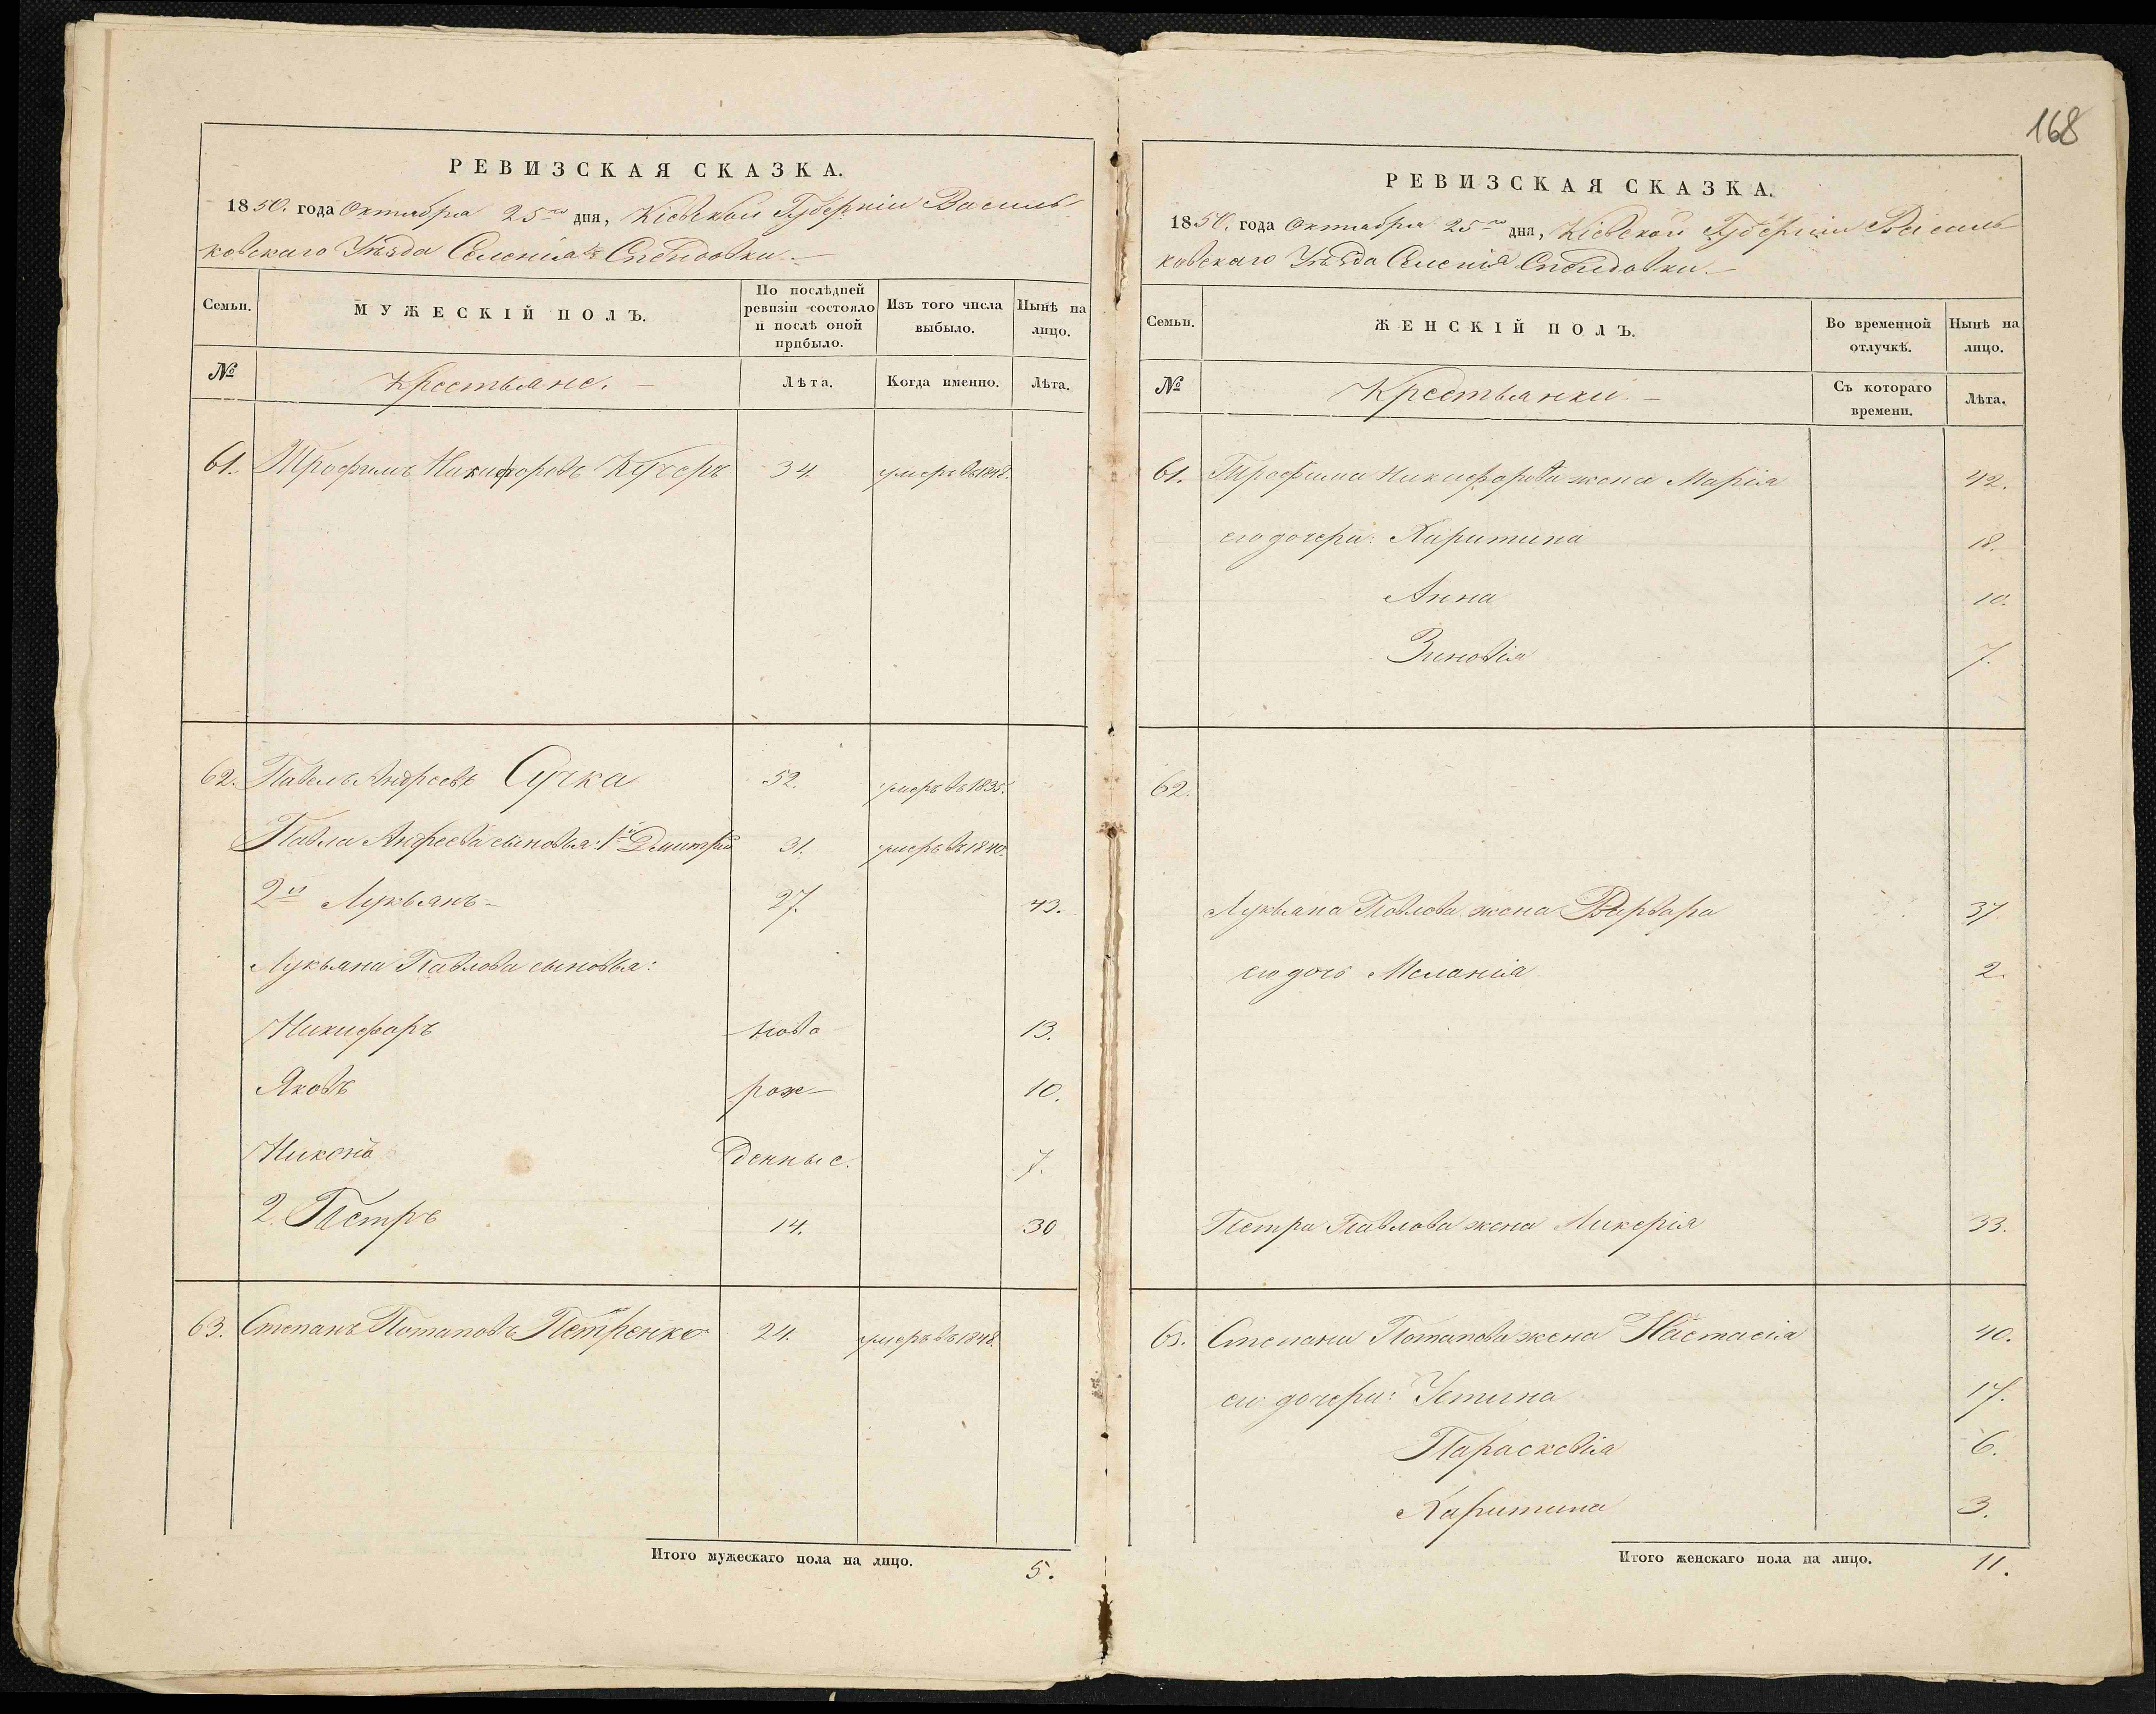 168
РЕВИЗСКАЯ СКАЗКА.
1850. года Октября 25го дня, Кіевской Губерніи Василь
ковскаго Уѣзда Селенія
Семьи.
МУЖЕСКІЙ ПОЛЪ.
По послѣдней ревизіи состояло и послѣ оной прибыло.
Изъ того числа выбыло.
Нынѣ на лицо.
№
Крестьяне.
Лѣта.
Когда именно.
Лѣта.
61. Трофимъ Никифоровъ Кучеръ 34. умеръ въ 1848.
62. Павелъ Андреевъ Сучка 52. умеръ въ 1835.
Павла Андреева сыновья: 1й Дмитрій 31. умеръ въ 1840.
2й Лукьянъ 27. 43.
Лукьяна Павлова сыновья:
Никифоръ ново 13.
Яковъ рож- 10.
Никонъ денные. 7.
2. Петръ 14. 30
63. Степанъ Потаповъ Петренко 24. умеръ въ 1848.
Итого мужескаго пола на лицо. 5.
РЕВИЗСКАЯ СКАЗКА.
1850. года Октября 25го дня, Кіевской Губерніи Василь
ковскаго Уѣзда Селенія
Семьи.
ЖЕНСКІЙ ПОЛЪ.
Во временной отлучкѣ.
Нынѣ на лицо.
№
Крестьянки.
Съ котораго времени.
Лѣта.
61. Трофима Никифорова жена Марія 42.
его дочери: Харитина 18.
Анна 10.
Зиновія 7.
62.
Лукьяна Павлова жена Варвара 37
его дочь Меланія 2.
Петра Павлова жена Ликерія 33.
63. Степана Потапова жена Настасія 40.
его дочери: Устина 17.
Параскевія 6.
Харитина 3.
Итого женскаго пола на лицо. 11.